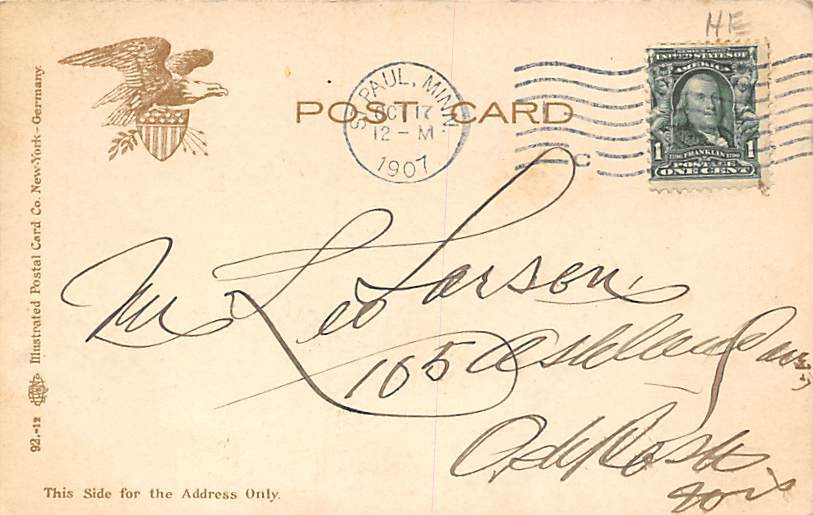 HE
UNITED STATES OF
AMERICA
1 FRANKLIN 1
POSTAGE
ONE CENT
POST CARD
ST. PAUL, MINN.
OCT 17
12 - M
1907
C
Mr Leo Larson
165 Ashland Ave
Wis
This Side for the Address Only.
92.-12 Illustrated Postal Card Co. New-York - Germany.